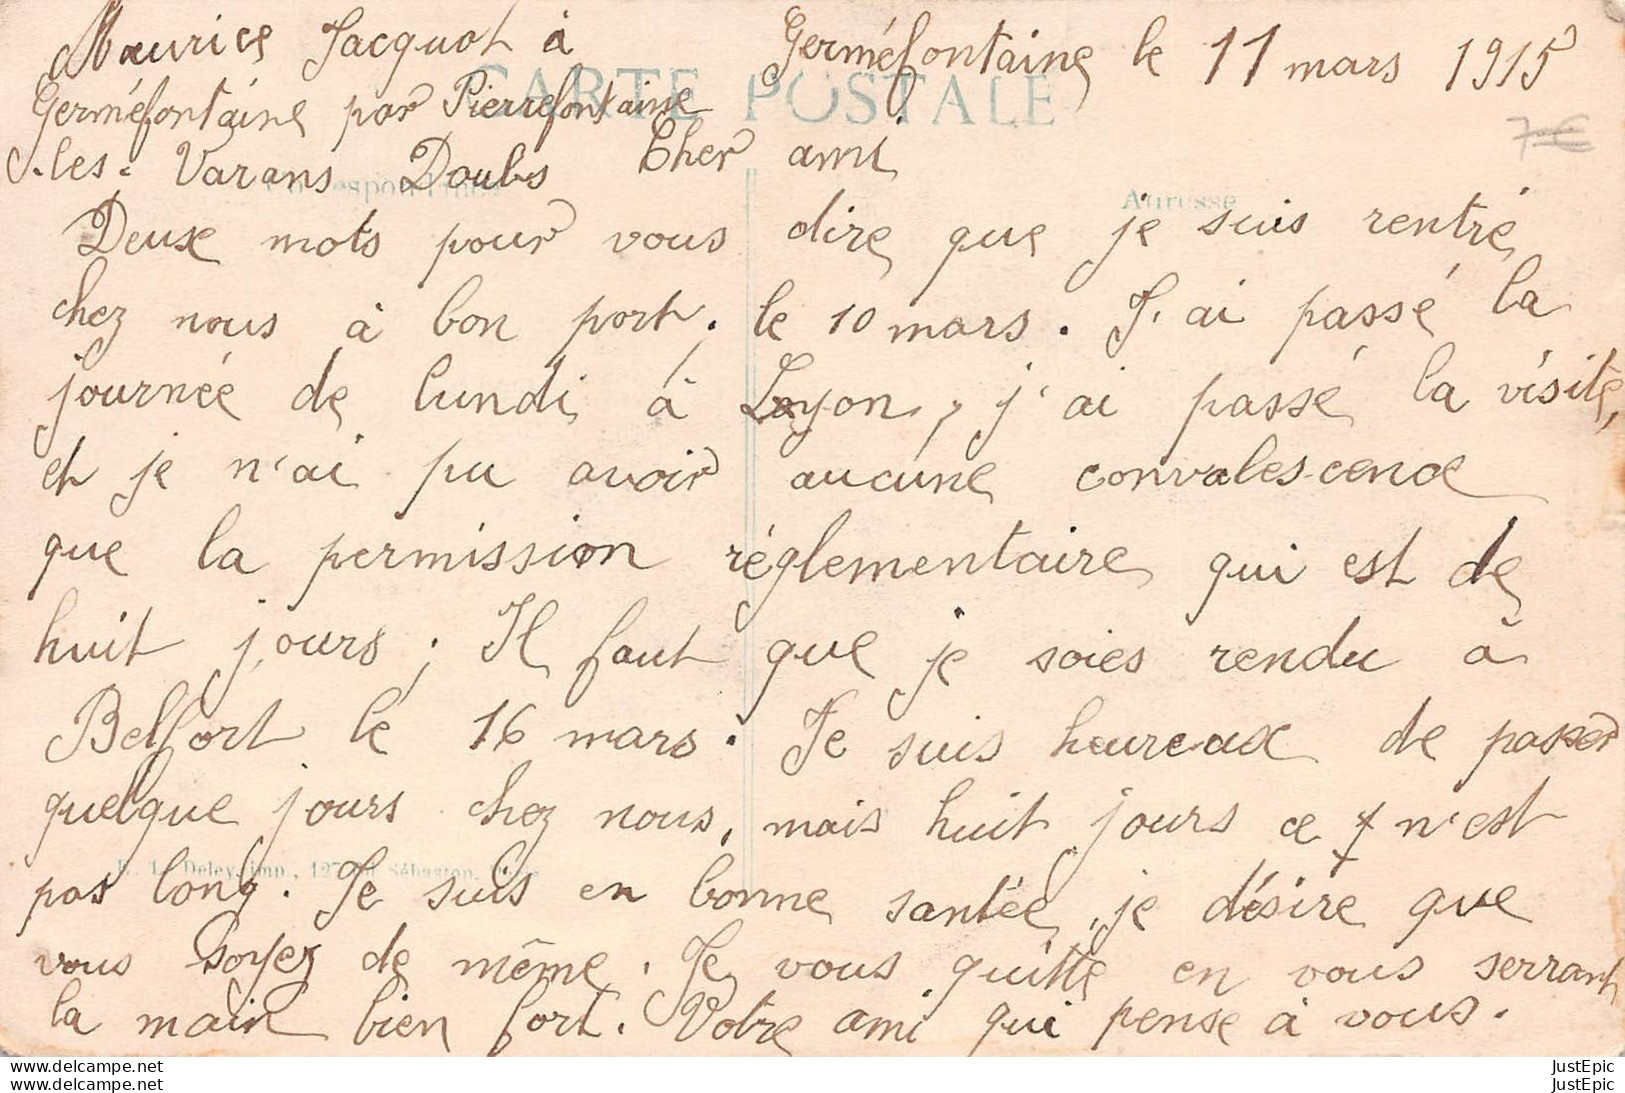 Maurice Jacquot à
Germéfontaine le 11 mars 1915
CARTE POSTALE
Germéfontaine par Pierrefontaine
-les- Varans Doubs Cher ami
7 €
Correspondance
Adresse
Deuxe mots pour vous dire que je suis rentré
chez nous à bon port, le 10 mars. J'ai passé la
journée de lundi à Layon, j'ai passé la visite,
et je n'ai pu avoir aucune convalescence
que la permission réglementaire qui est de
huit jours; Il faut que je soies rendu à
Belfort le 16 mars. Je suis heureux de passer
quelque jours chez nous, mais huit jours ce n'est
E. L. Deley, imp., 127, Sébastop.
pas long. Je suis en bonne santée, je désire que
vous soyez de même. Je vous quitte en vous serrant
la main bien fort. Votre ami qui pense à vous.
JustEpic
JustEpic
www.delcampe.net
www.delcampe.net